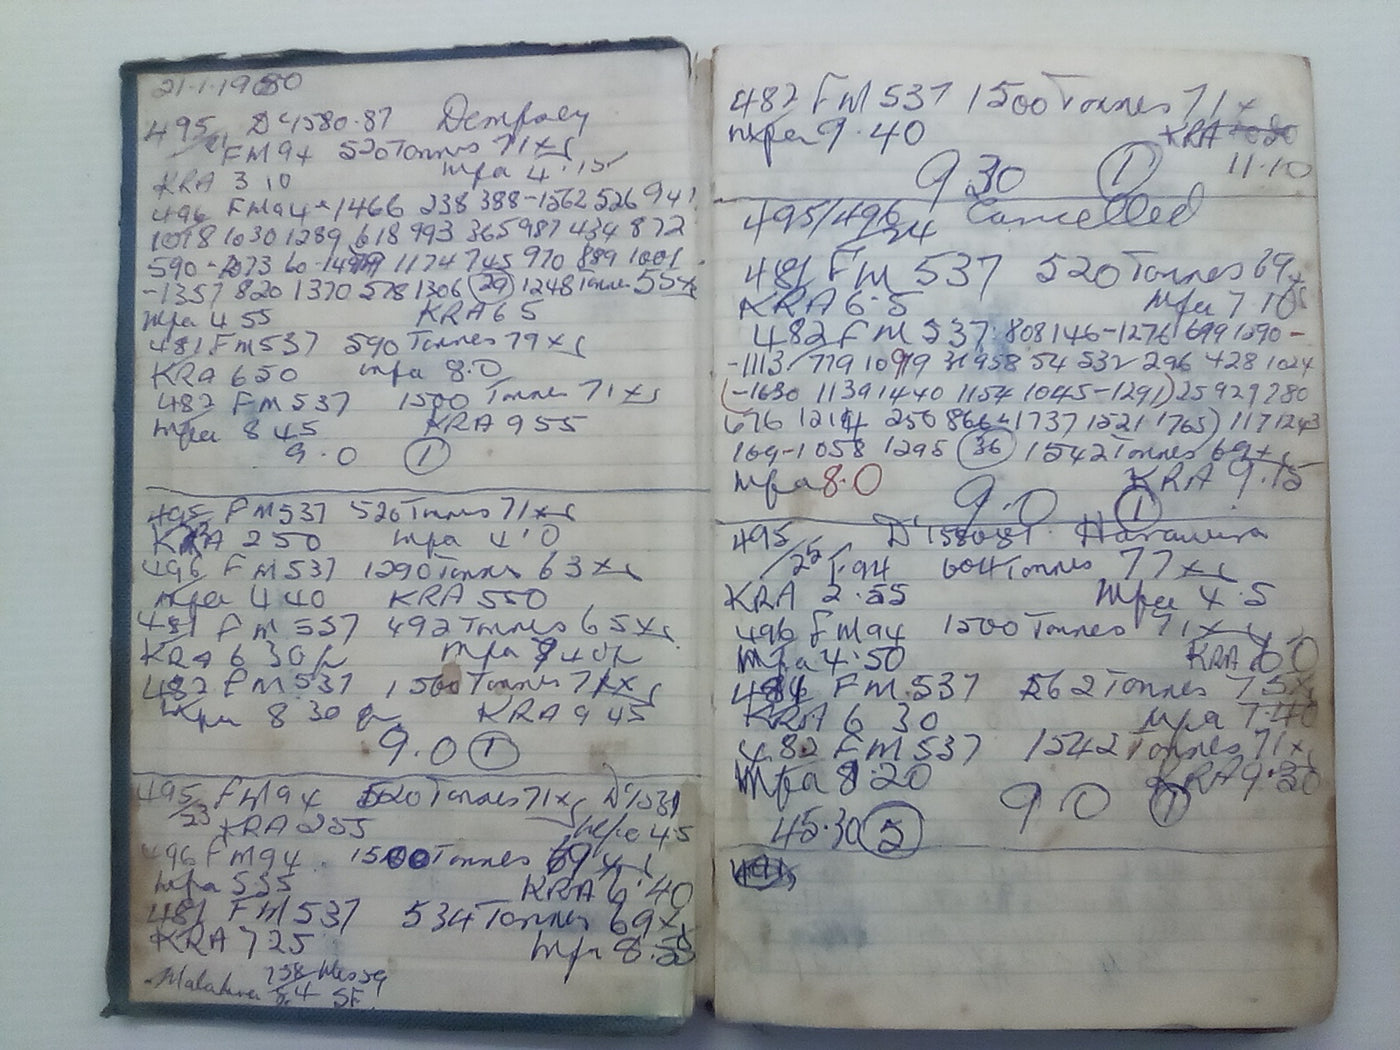 21.1.1980
495 D 4580.87 Dempsey
/21 FM94 520 Tonnes 71xs
KRA 3 10 mpa 4.15
496 FM94 - 1466 238 388-1562 526 941
1078 1030 1289 618 993 365 987 434 872
590 - 1073 60 - 1174 745 970 889 1001
-1357 820 1370 578 1306 (29) 1248 Tonnes 55xs
mpa 4 55 KRA 6 5
481 FM537 590 Tonnes 79xs
KRA 650 mpa 8.0
482 FM537 1500 Tonnes 71xs
mpa 8 45 KRA 955
9.0 (1)
495 FM537 520 Tonnes 71xs
KRA 250 mpa 4.0
496 FM537 1290 Tonnes 63xs
mpa 4 40 KRA 550
481 FM 537 492 Tonnes 65xs
KRA 6 30 mpa 40
482 FM537 1500 Tonnes 71xs
mpa 8 30 KRA 9 45
9.0 (1)
495 FM94 520 Tonnes 71xs
/23 KRA 255 mpa 4.5
496 FM94 1500 Tonnes 69xs
mpa 535 KRA 6.40
481 FM537 534 Tonnes 69xs
KRA 725 mpa 8.55
482 FM537 1500 Tonnes 71xs
mpa 9.40 KRA
9 30 (1) 11.10
495/496/24 Cancelled
481 FM 537 520 Tonnes 69xs
KRA 6.5 mpa 7.10
482 FM 537 808 146-1276 699 1290 -
-1113 779 1099 31 958 54 532 296 428 1024
(-1630 1139 1440 1154 1045-1291) 25 929 280
676 1214 250 866 -1737 1521 1765) 117 1243
169-1058 1295 (36) 1542 Tonnes 69xs
mpa 8.0 KRA 9.15
9.0 (1)
495 D
/25 F94 604 Tonnes 77xs
KRA 2.55 mpa 4.5
496 FM94 1500 Tonnes 71xs
mpa 4.50 KRA 6 0
481 FM.537 562 Tonnes 75xs
KRA 6 30 mpa 7.40
482 FM537 1542 Tonnes 71xs
mpa 8.20 KRA 9.20
9 0 (1)
45.30 (5)